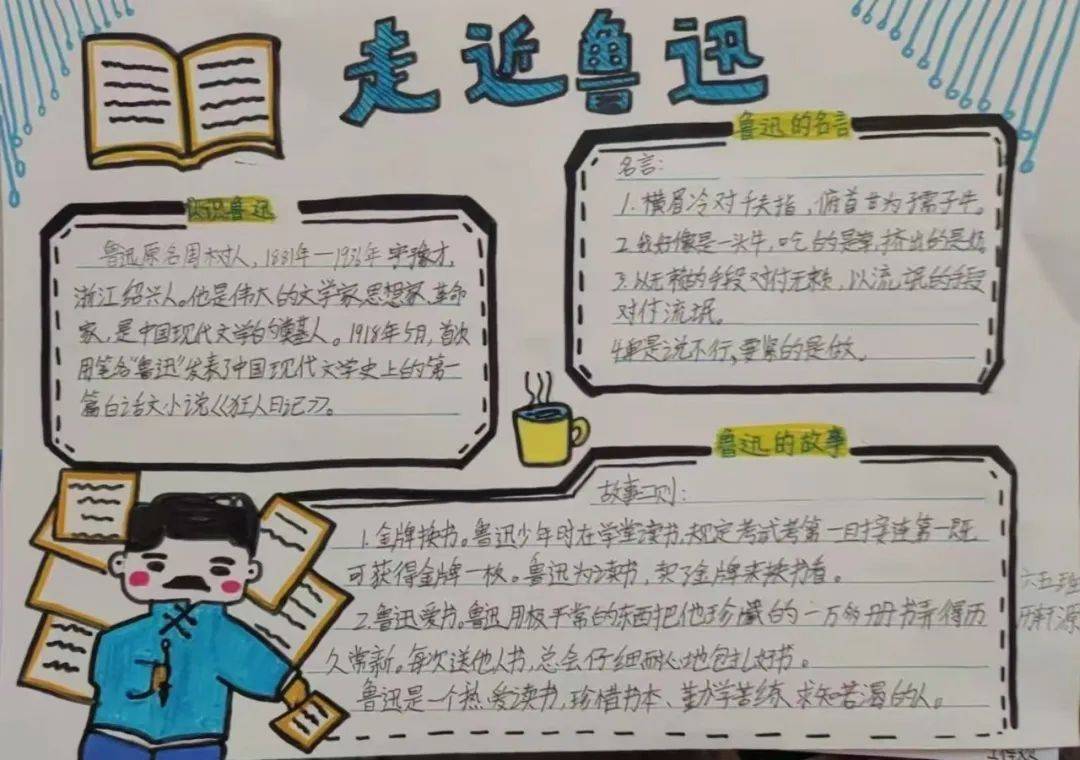 走近鲁迅
认识鲁迅
鲁迅原名周树人,1881年—1936年 字豫才,
浙江绍兴人。他是伟大的文学家、思想家、革命
家,是中国现代文学的奠基人。1918年5月,首次
用笔名“鲁迅”发表了中国现代文学史上的第一
篇白话文小说《狂人日记》。
鲁迅的名言
名言:
1.横眉冷对千夫指,俯首甘为孺子牛。
2.我好像是一头牛,吃的是草,挤出的是奶
3.以无赖的手段对付无赖,以流氓的手段
对付流氓。
4.单是说不行,要紧的是做。
鲁迅的故事
故事二则:
1.金牌换书。鲁迅少年时在学堂读书,规定考试考第一且接连第一既
可获得金牌一枚。鲁迅为读书,卖了金牌来换书看。
2.鲁迅爱书。鲁迅用极平常的东西把他珍藏的一万多册书弄得历
久常新。每次送他人书,总会仔细耐心地包扎好书。
鲁迅是一个热爱读书,珍惜书本、勤学苦练、求知若渴的人。
六五班
源